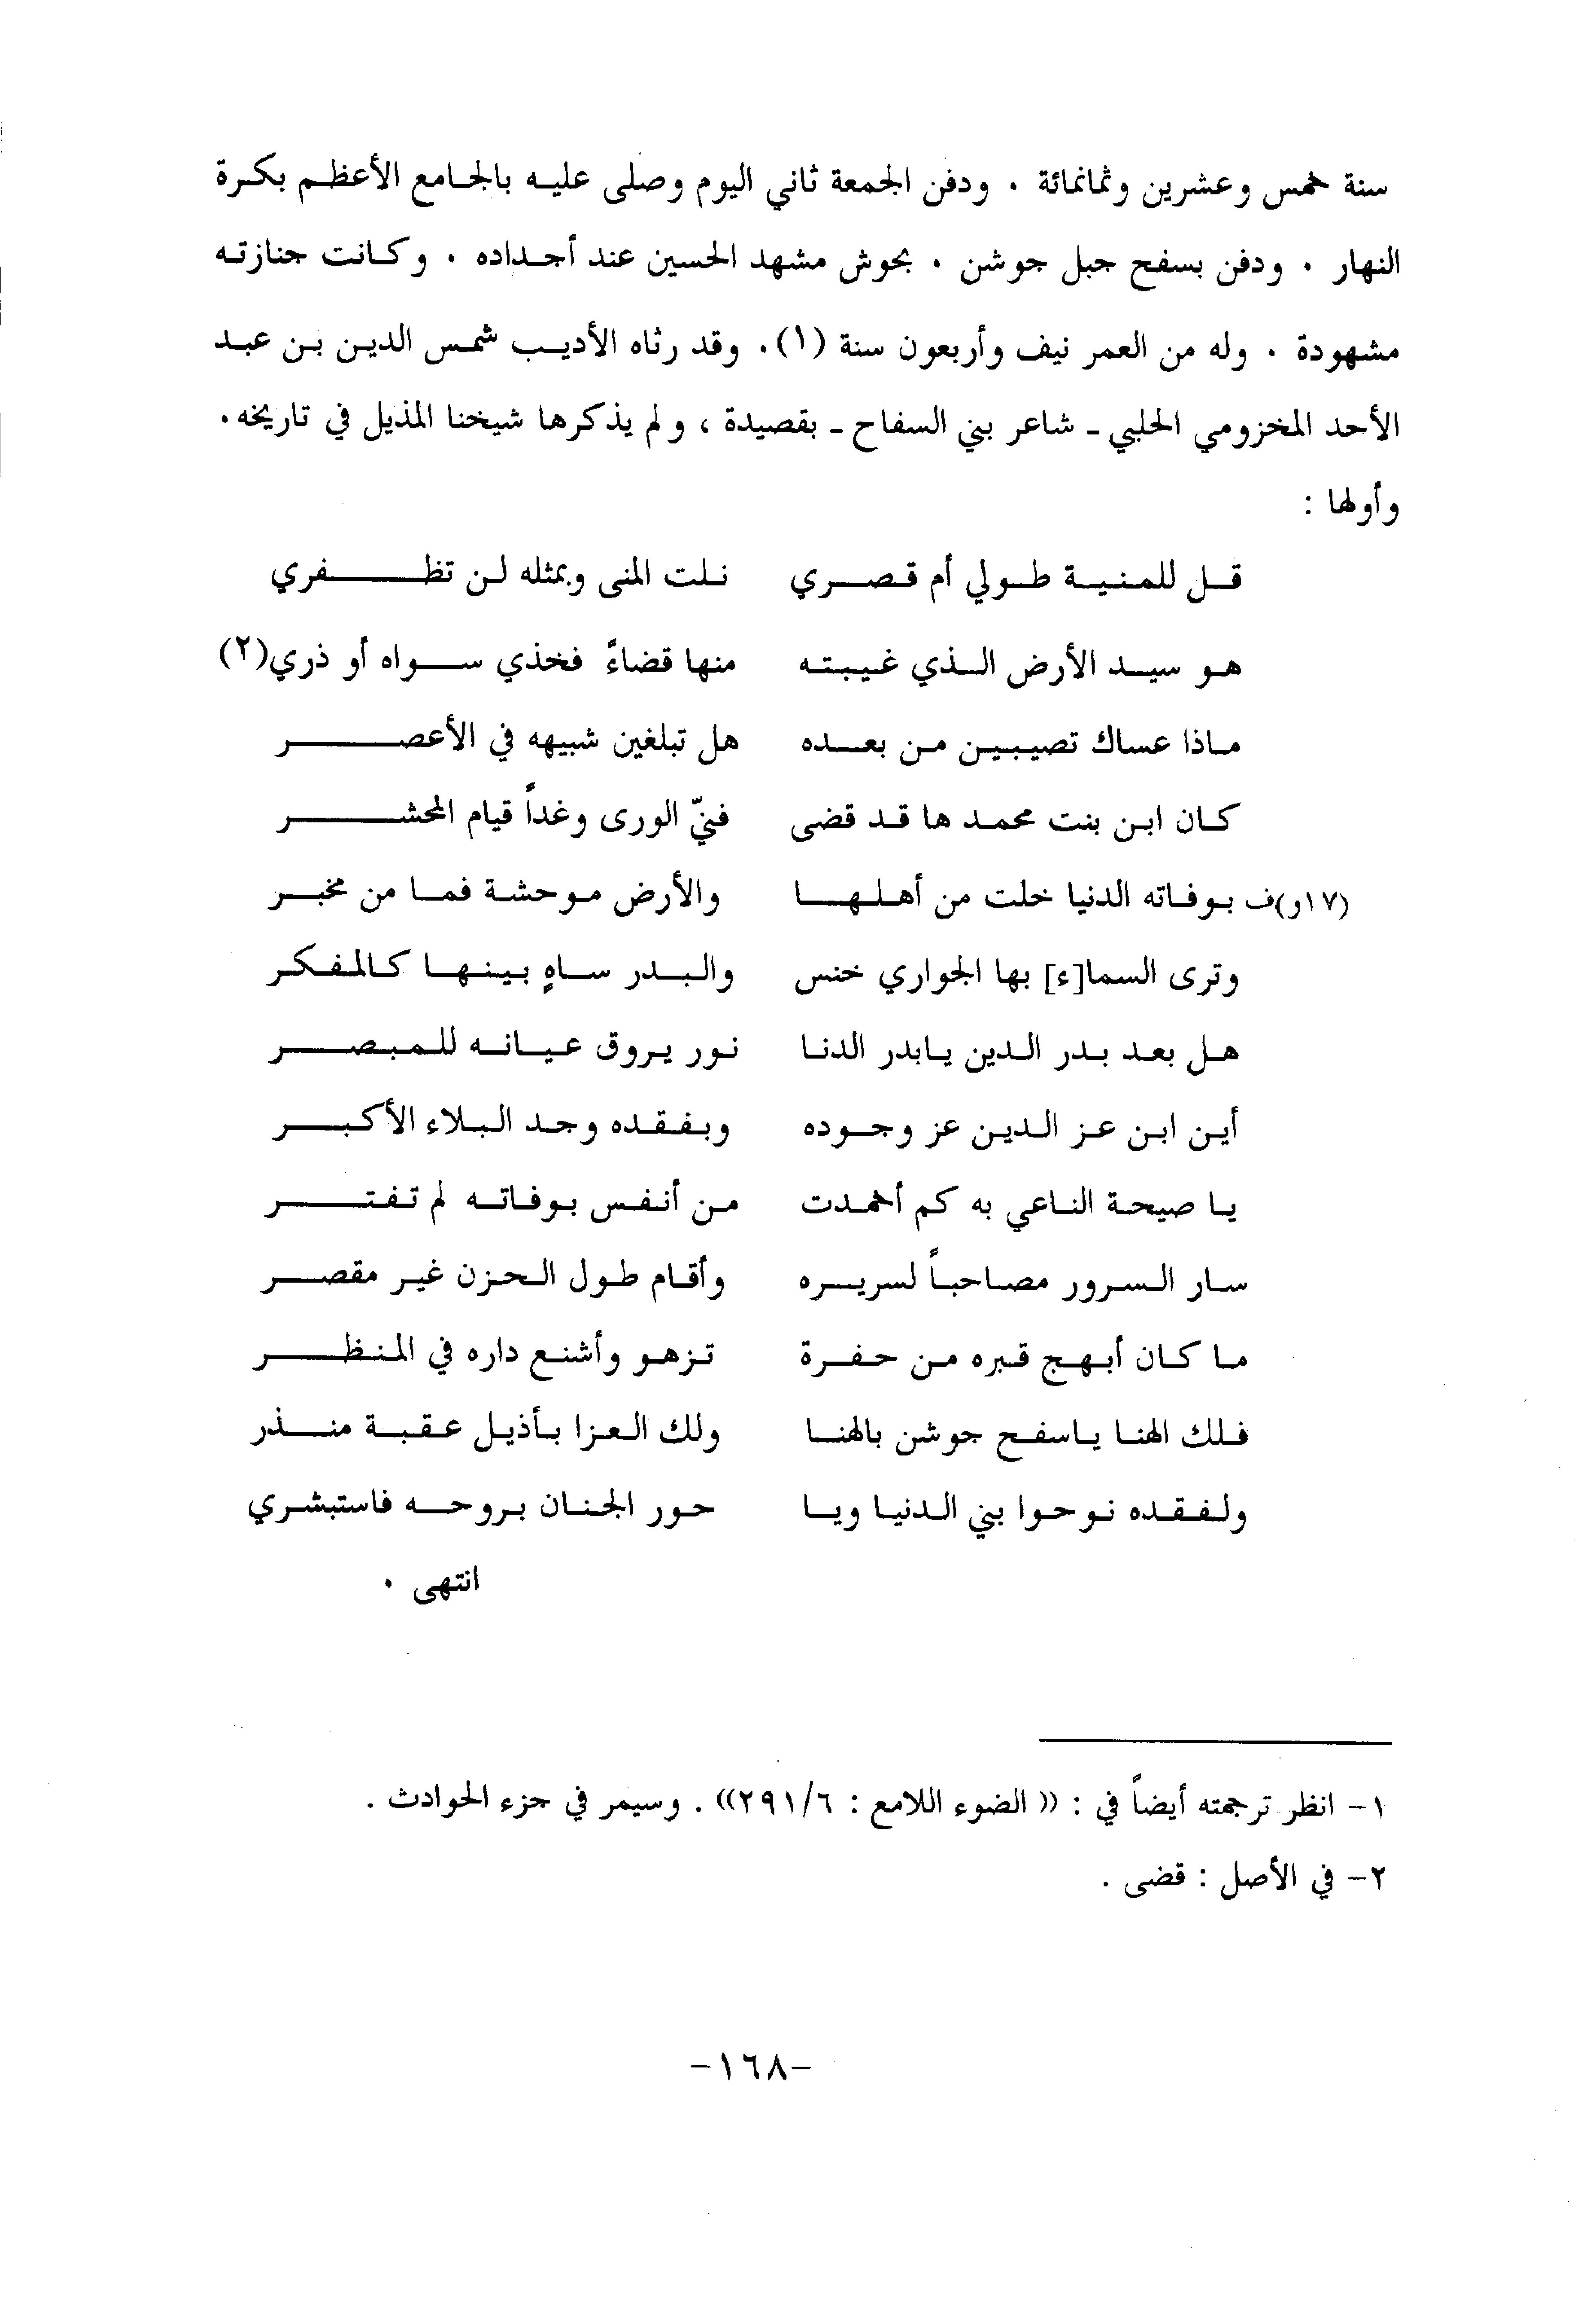 سنة خمس وعشرين وثمانمائة . ودفن الجمعة ثاني اليوم وصلى عليه بالجامع الأعظم بكرة
النهار . ودفن بسفح جبل جوشن . بحوش مشهد الحسين عند أجداده . وكانت جنازته
مشهودة . وله من العمر نيف وأربعون سنة (١). وقد رثاه الأديب شمس الدين بن عبد
الأحد المخزومي الحلبي - شاعر بني السفاح - بقصيدة ، ولم يذكرها شيخنا المذيل في تاريخه.
وأولها :
قل للمنية طولي أم قصري نلت المنى وبمثله لن تظفري
هو سيد الأرض الذي غيبته منها قضاءً فخذي سواه أو ذري(٢)
ماذا عساك تصيبين من بعده هل تبلغين شبيهه في الأعصر
كان ابن بنت محمد ها قد قضى فنيّ الورى وغداً قيام المحشر
(١٧و)ف بوفاته الدنيا خلت من أهلها والأرض موحشة فما من مخبر
وترى السما[ء] بها الجواري خنس والبدر ساهٍ بينها كالمفكر
هل بعد بدر الدين يابدر الدنا نور يروق عيانه للمبصر
أين ابن عز الدين عز وجوده وبفقده وجد البلاء الأكبر
يا صيحة الناعي به كم أخمدت من أنفس بوفاته لم تفتر
سار السرور مصاحباً لسريره وأقام طول الحزن غير مقصر
ما كان أبهج قبره من حفرة تزهو وأشنع داره في المنظر
فلك الهنا ياسفح جوشن بالهنا ولك العزا بأذيل عقبة منذر
ولفقده نوحوا بني الدنيا ويا حور الجنان بروحه فاستبشري
انتهى .
١- انظر ترجمته أيضاً في : (( الضوء اللامع : ٢٩١/٦)) . وسيمر في جزء الحوادث .
٢- في الأصل : قضى .
-١٦٨-